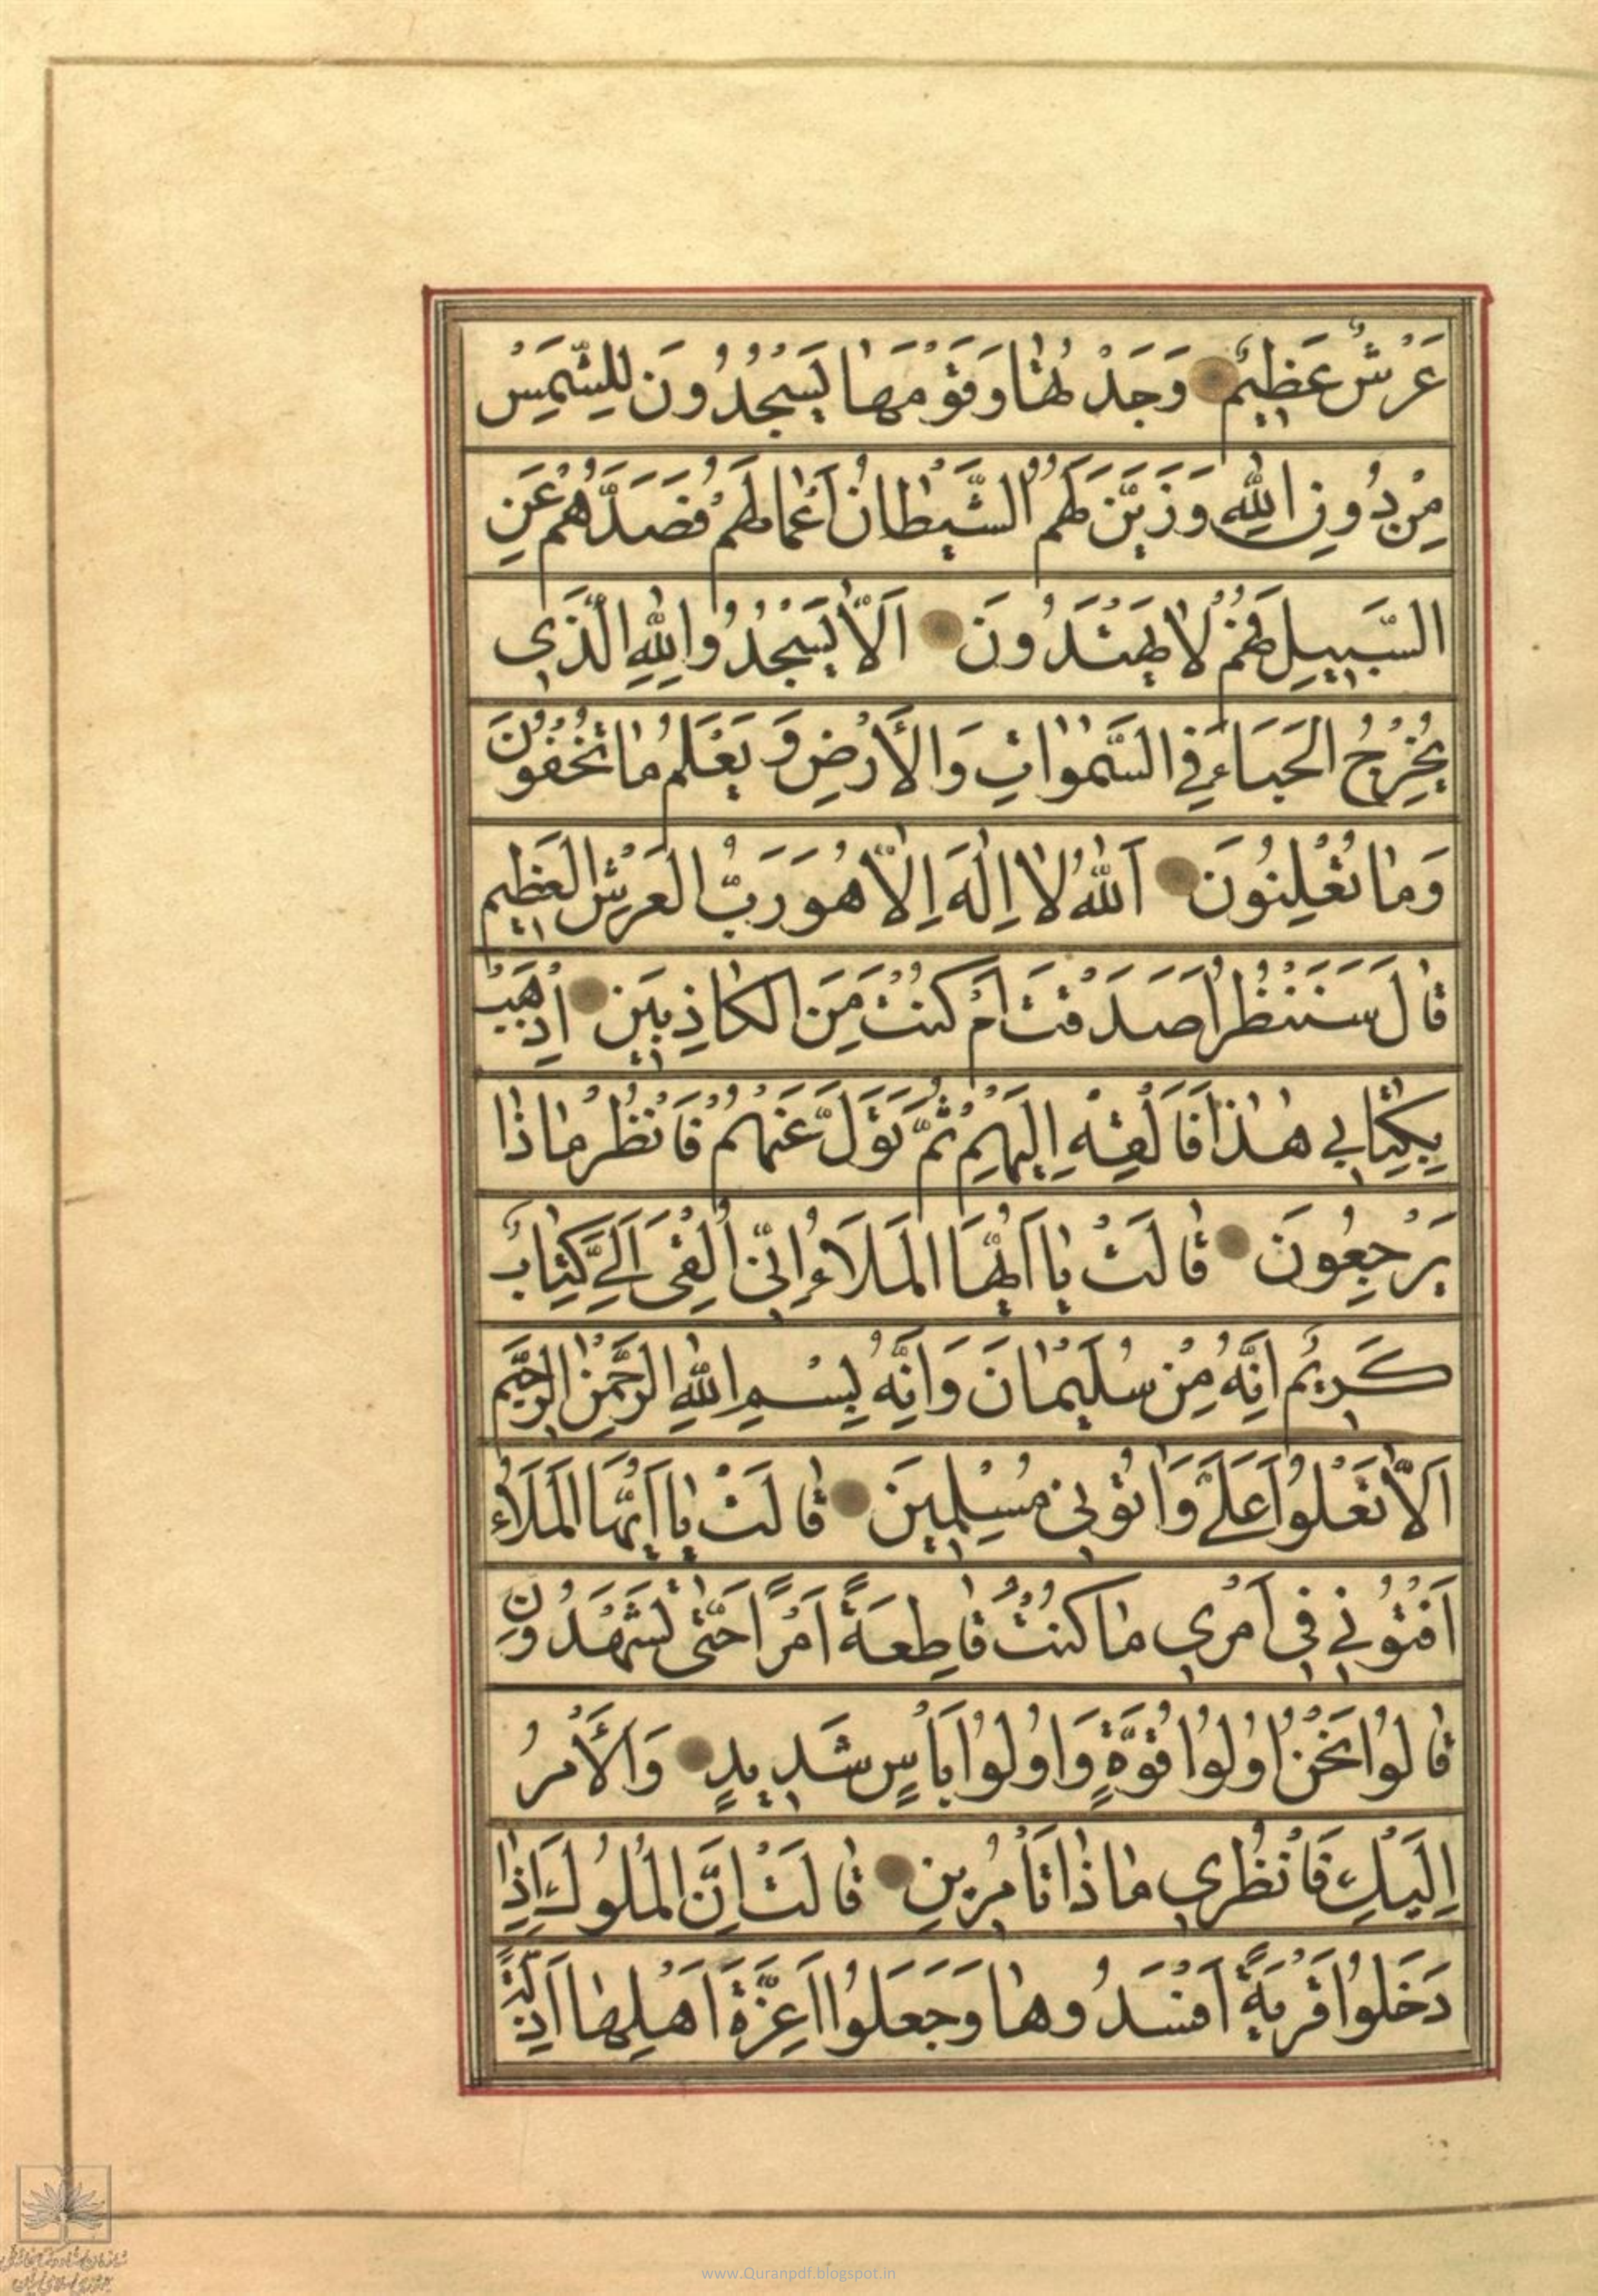 عَرْشٌ عَظِيمٌ وَجَدْتُهَا وَقَوْمَهَا يَسْجُدُونَ لِلشَّمْسِ
مِنْ دُونِ اللّٰهِ وَزَيَّنَ لَهُمُ الشَّيْطَانُ اَعْمَالَهُمْ فَصَدَّهُمْ عَنِ
السَّبِيلِ فَهُمْ لَا يَهْتَدُونَ اَلَّا يَسْجُدُوا لِلّٰهِ الَّذِي
يُخْرِجُ الْخَبَاءَ فِي السَّمٰوَاتِ وَالْأَرْضِ وَيَعْلَمُ مَا تُخْفُونَ
وَمَا تُعْلِنُونَ اَللّٰهُ لَا اِلٰهَ اِلَّا هُوَ رَبُّ الْعَرْشِ الْعَظِيمِ
قَالَ سَنَنْظُرُ اَصَدَقْتَ اَمْ كُنْتَ مِنَ الْكَاذِبِينَ اِذْهَبْ
بِكِتَابِي هٰذَا فَاَلْقِهْ اِلَيْهِمْ ثُمَّ تَوَلَّ عَنْهُمْ فَانْظُرْ مَاذَا
يَرْجِعُونَ قَالَتْ يَا اَيُّهَا الْمَلَاءُ اِنِّي اُلْقِيَ اِلَيَّ كِتَابٌ
كَرِيمٌ اِنَّهُ مِنْ سُلَيْمَانَ وَاِنَّهُ بِسْمِ اللّٰهِ الرَّحْمٰنِ الرَّحِيمِ
اَلَّا تَعْلُوا عَلَيَّ وَاْتُونِي مُسْلِمِينَ قَالَتْ يَا اَيُّهَا الْمَلَاءُ
اَفْتُونِي فِي اَمْرِي مَا كُنْتُ قَاطِعَةً اَمْرًا حَتّٰى تَشْهَدُونِ
قَالُوا نَحْنُ اُولُوا قُوَّةٍ وَاُولُوا بَأْسٍ شَدِيدٍ وَالْأَمْرُ
اِلَيْكِ فَانْظُرِي مَاذَا تَأْمُرِينَ قَالَتْ اِنَّ الْمُلُوكَ اِذَا
دَخَلُوا قَرْيَةً اَفْسَدُوهَا وَجَعَلُوا اَعِزَّةَ اَهْلِهَا اَذِلَّةً
www.Quranpdf.blogspot.in